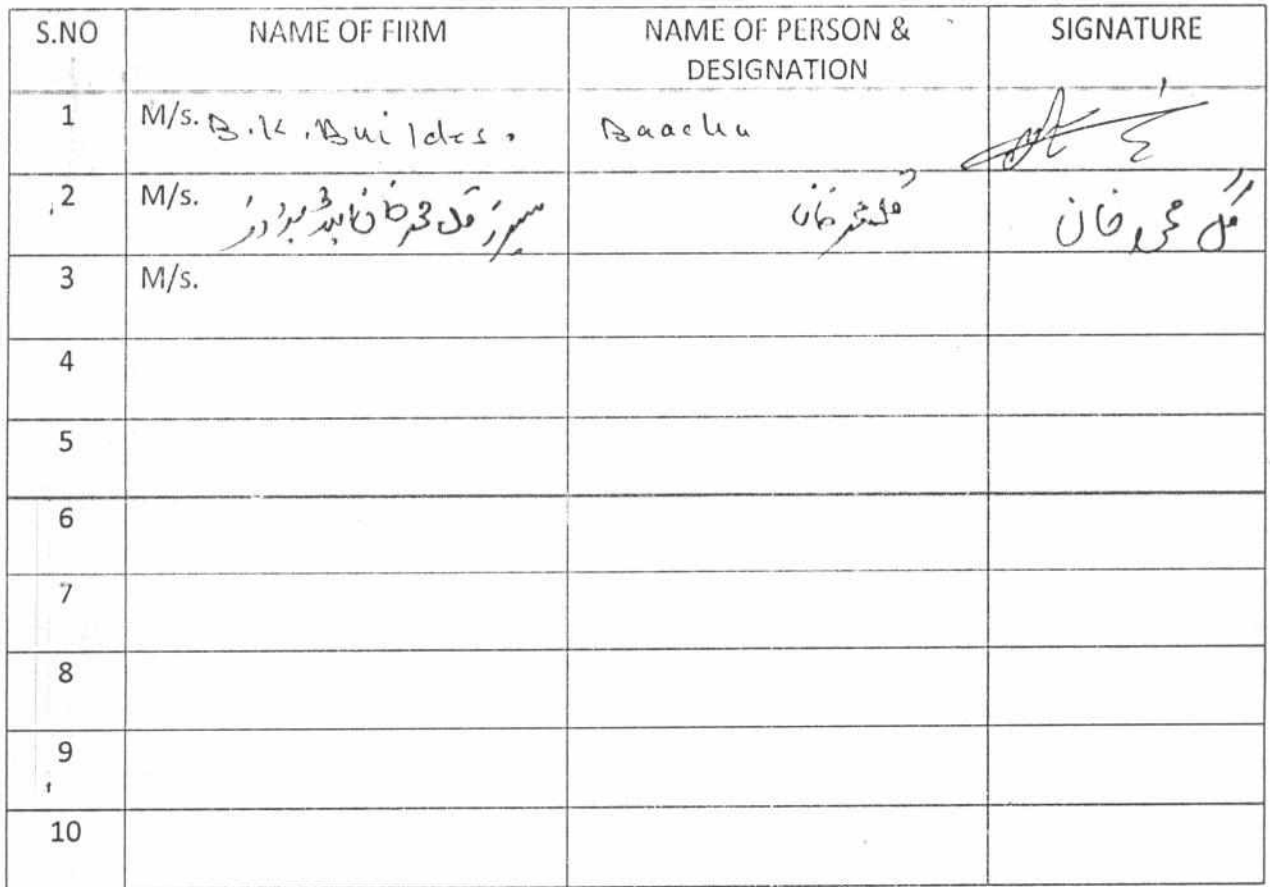 S.NO NAME OF FIRM NAME OF PERSON & SIGNATURE
DESIGNATION
1 M/s. B.K. Buildes. Baacha
2 M/s. میسرز گل محمد خان اینڈ برادرز گل محمد خان گل محمد خان
3 M/s.
4
5
6
7
8
9
10